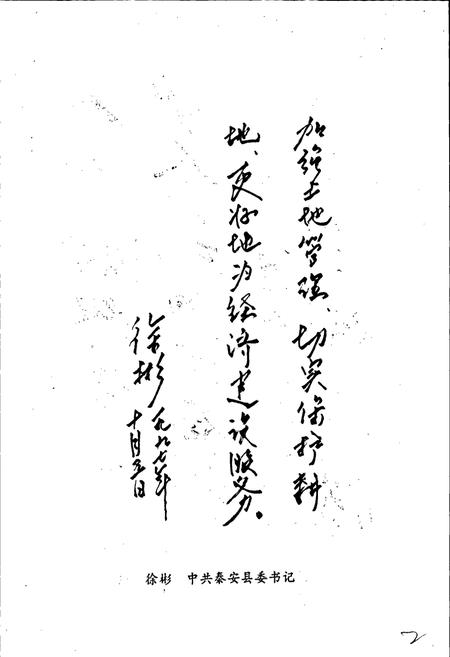 加强土地管理、切实保护耕
地、更好地为经济建设服务。
徐彬
一九九七年
十月五日
徐彬 中共秦安县委书记
2